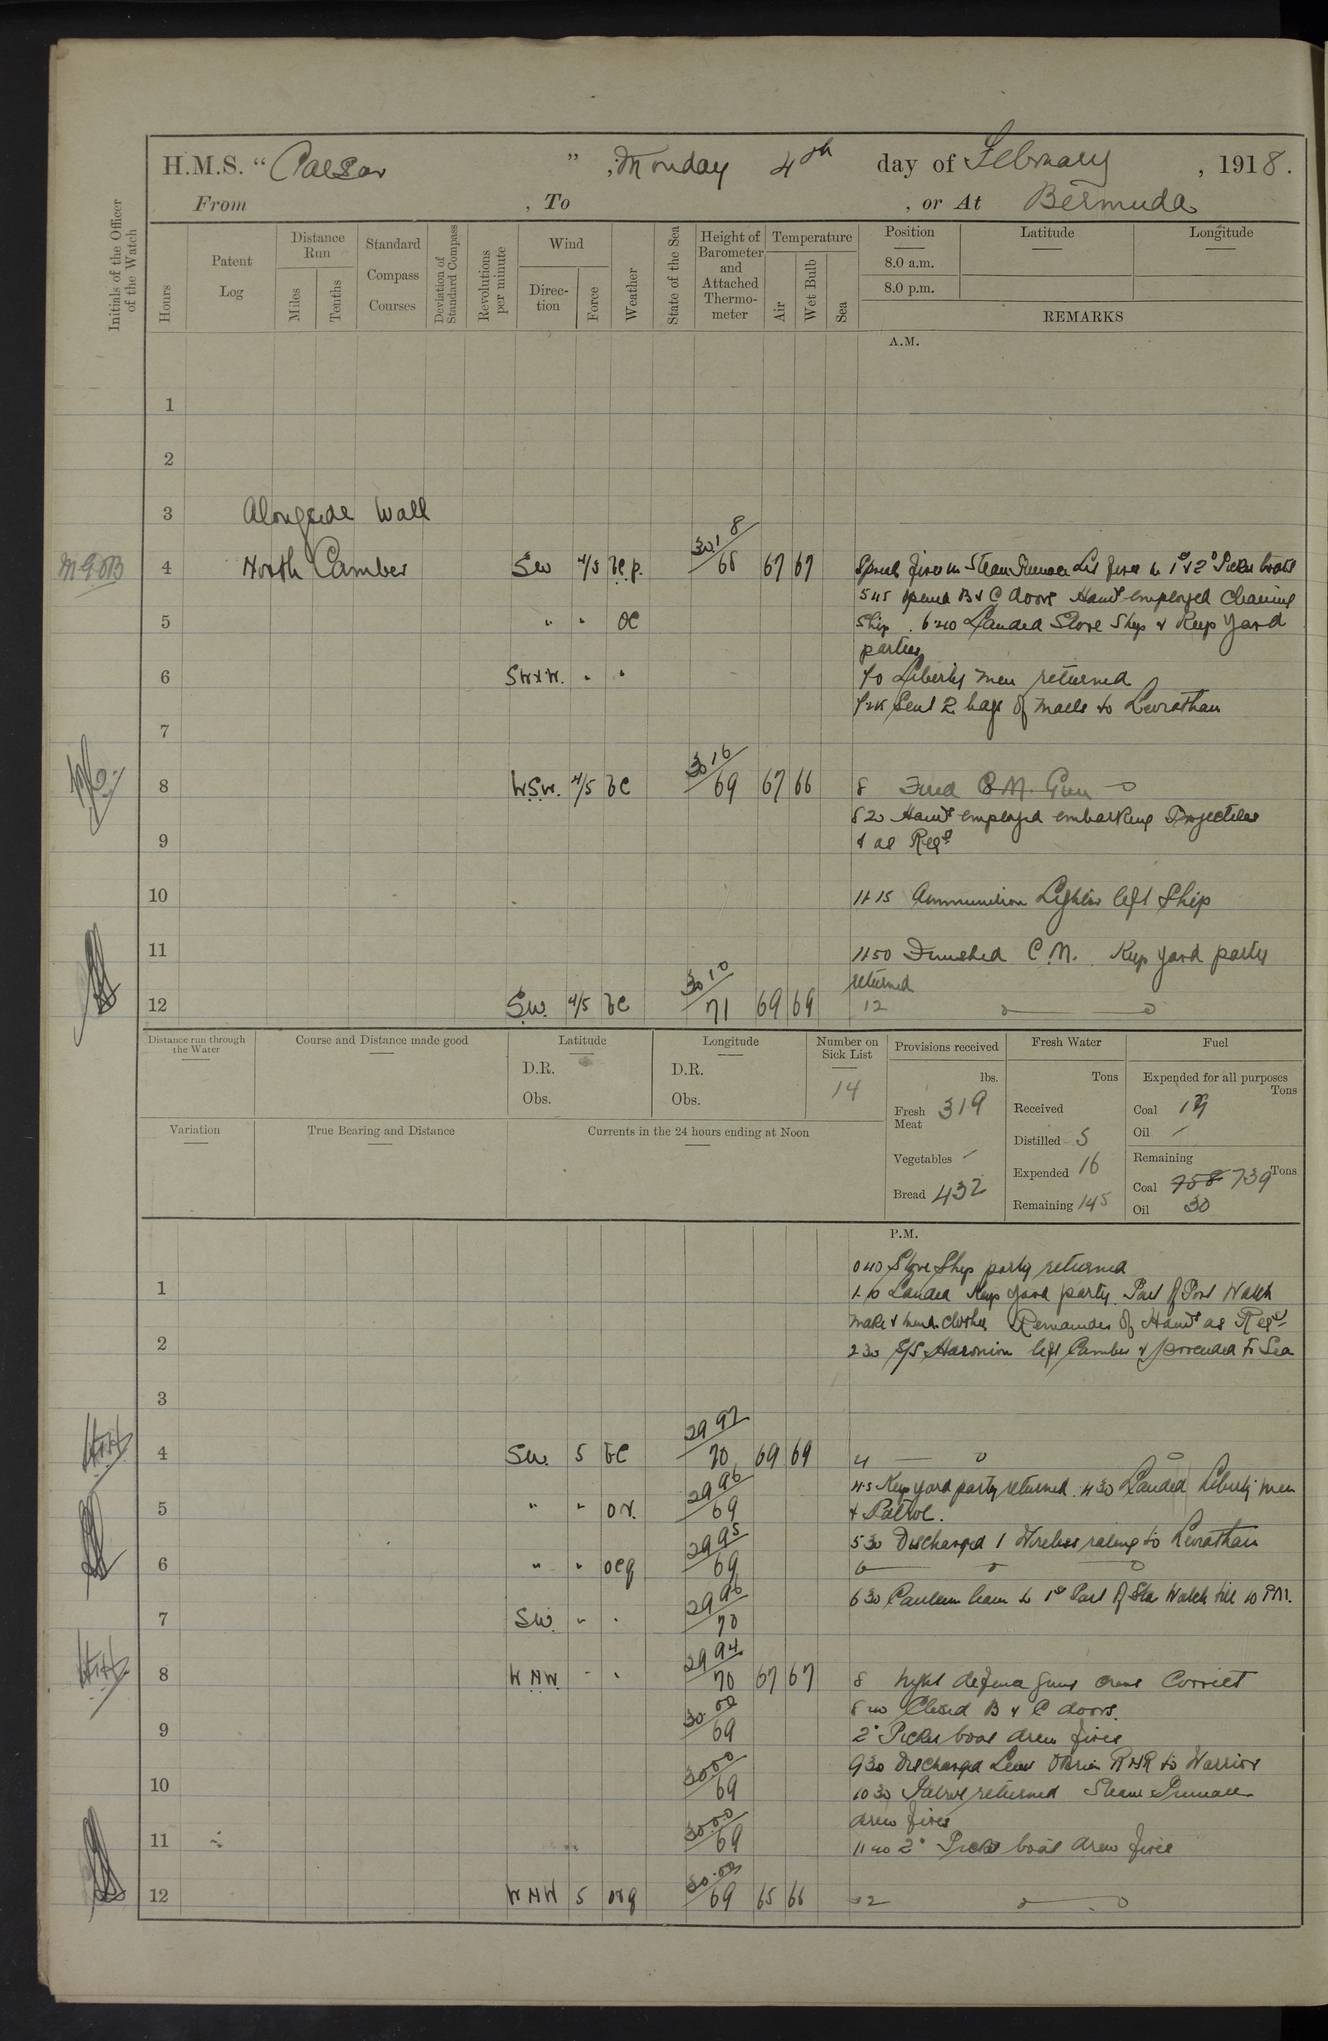 H.M.S. “ Caesar ” , Monday 4th day of February , 1918.
From , To , or At Bermuda
Initials of the Officer of the Watch
Hours
Patent Log
Distance Run
Miles
Tenths
Standard Compass Courses
Deviation of Standard Compass
Revolutions per minute
Wind
Direction
Force
Weather
State of the Sea
Height of Barometer and Attached Thermometer
Temperature
Air
Wet Bulb
Sea
Position Latitude Longitude
8.0 a.m.
8.0 p.m.
REMARKS
A.M.
1
2
3 Alongside Wall
4 North Camber SW 4/5 bc.p. 30.18/68 67 67 Spread fires in Steam Pinnace Lit fires in 1st & 2d Picket boats
545 opened B & C doors Hands employed Cleaning
5 " " oc Ship. 6.20 Landed Store Ship & Keep Yard
parties
6 SWxW. " " 7.0 Liberty men returned
Sent 2 bags of mails to Leviathan
7
8 WSW. 4/5 bc 30 16/69 67 66 8 Fired 8 M. Gun
820 Hands employed embarking Projectiles
9 & as Reqd
10 11.15 Ammunition Lighter left Ship
11 1150 Finished C.M. Keep yard party
returned
12 SW. 4/5 bc 30 10/71 69 69 12
Distance run through the Water
Course and Distance made good
Latitude
D.R.
Obs.
Longitude
D.R.
Obs.
Number on Sick List
14
Provisions received
lbs.
Fresh Meat 319
Vegetables –
Bread 432
Fresh Water
Tons
Received
Distilled 5
Expended 16
Remaining 145
Fuel
Expended for all purposes
Tons
Coal 19
Oil –
Remaining
Coal 758 739 Tons
Oil 30
Variation
True Bearing and Distance
Currents in the 24 hours ending at Noon
P.M.
040 Store Ship party returned
1 1.10 Landed Keep yard party. Part of Port Watch
make & mend clothes Remainder of Hands as Reqd
2 230 S/S Haronian left Camber & proceeded to Sea
3
4 SW. 5 bc 29 97/70 69 69 4
45 Keep yard party returned. 430 Landed Liberty men
5 " " or. 29 96/69 & Patrol.
530 Discharged 1 Wireless rating to Leviathan
6 " " ocq 29 95/69 6
630 Canteen leave to 1st Part of Star Watch till 10 PM.
7 SW. " " 29 96/70
8 WNW " " 29 94/70 67 67 8 Night defence guns crews Correct
Closed B & C doors.
9 30.00/69 2d Picket boat drew fires
930 Discharged Lieut O'Brien RNR to Warrior
10 30.00/69 1030 Patrol returned Steam Pinnace
drew fires
11 30.00/69 1140 2d Picket boat drew fires
12 WNW 5 orq 30.00/69 65 66 12